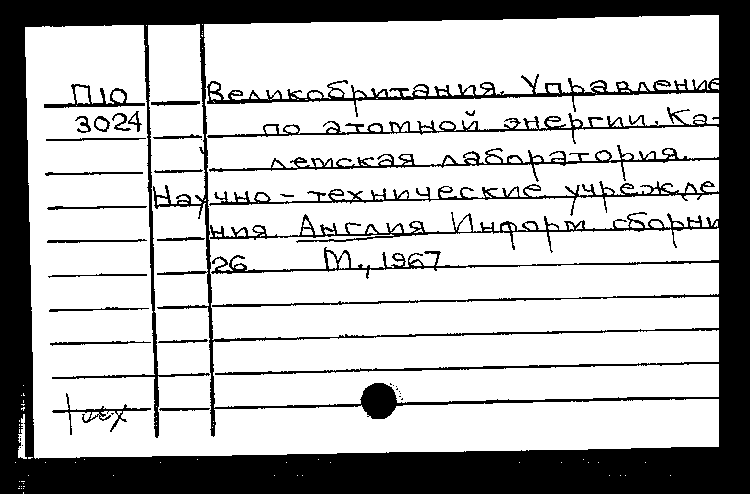 П10 Великобритания. Управление
3024 по атомной энергии. Ка-
лемская лаборатория.
Научно-технические учрежде
ния Англия Информ. сборни
26 М., 1967